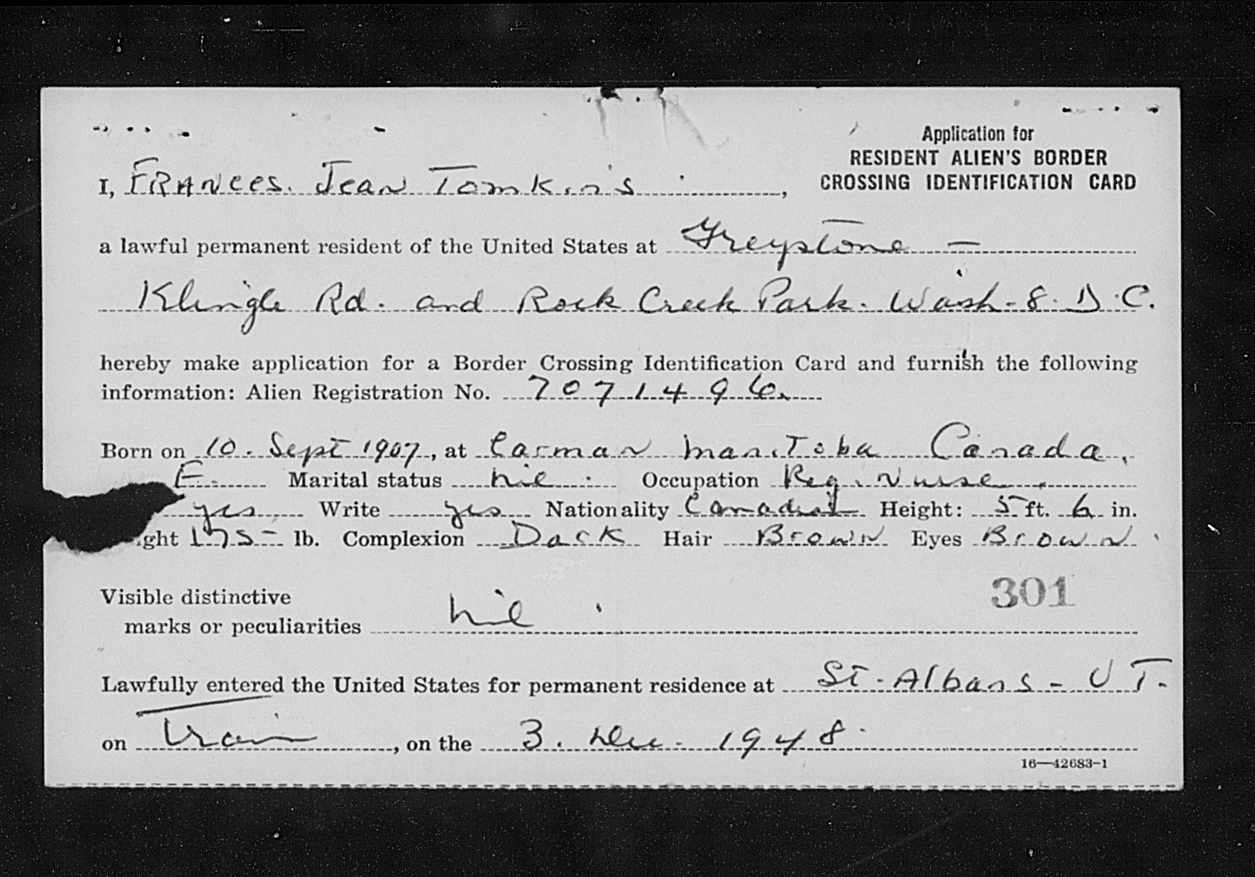 Application for
RESIDENT ALIEN'S BORDER
CROSSING IDENTIFICATION CARD
I, FRANCES. Jean Tomkins,
a lawful permanent resident of the United States at Greystone —
Klingle Rd. and Rock Creek Park. Wash-8. D.C.
hereby make application for a Border Crossing Identification Card and furnish the following
information: Alien Registration No. 7071496.
Born on 10. Sept 1907, at Carman Manitoba Canada.
F. Marital status nil. Occupation Reg. Nurse.
yes Write yes Nationality Canadian Height: 5 ft. 6 in.
ght 175 lb. Complexion Dark Hair Brown Eyes Brown.
301
Visible distinctive
marks or peculiarities nil.
Lawfully entered the United States for permanent residence at St. Albans - VT.
on train, on the 3. Dec. 1948.
16—42683-1